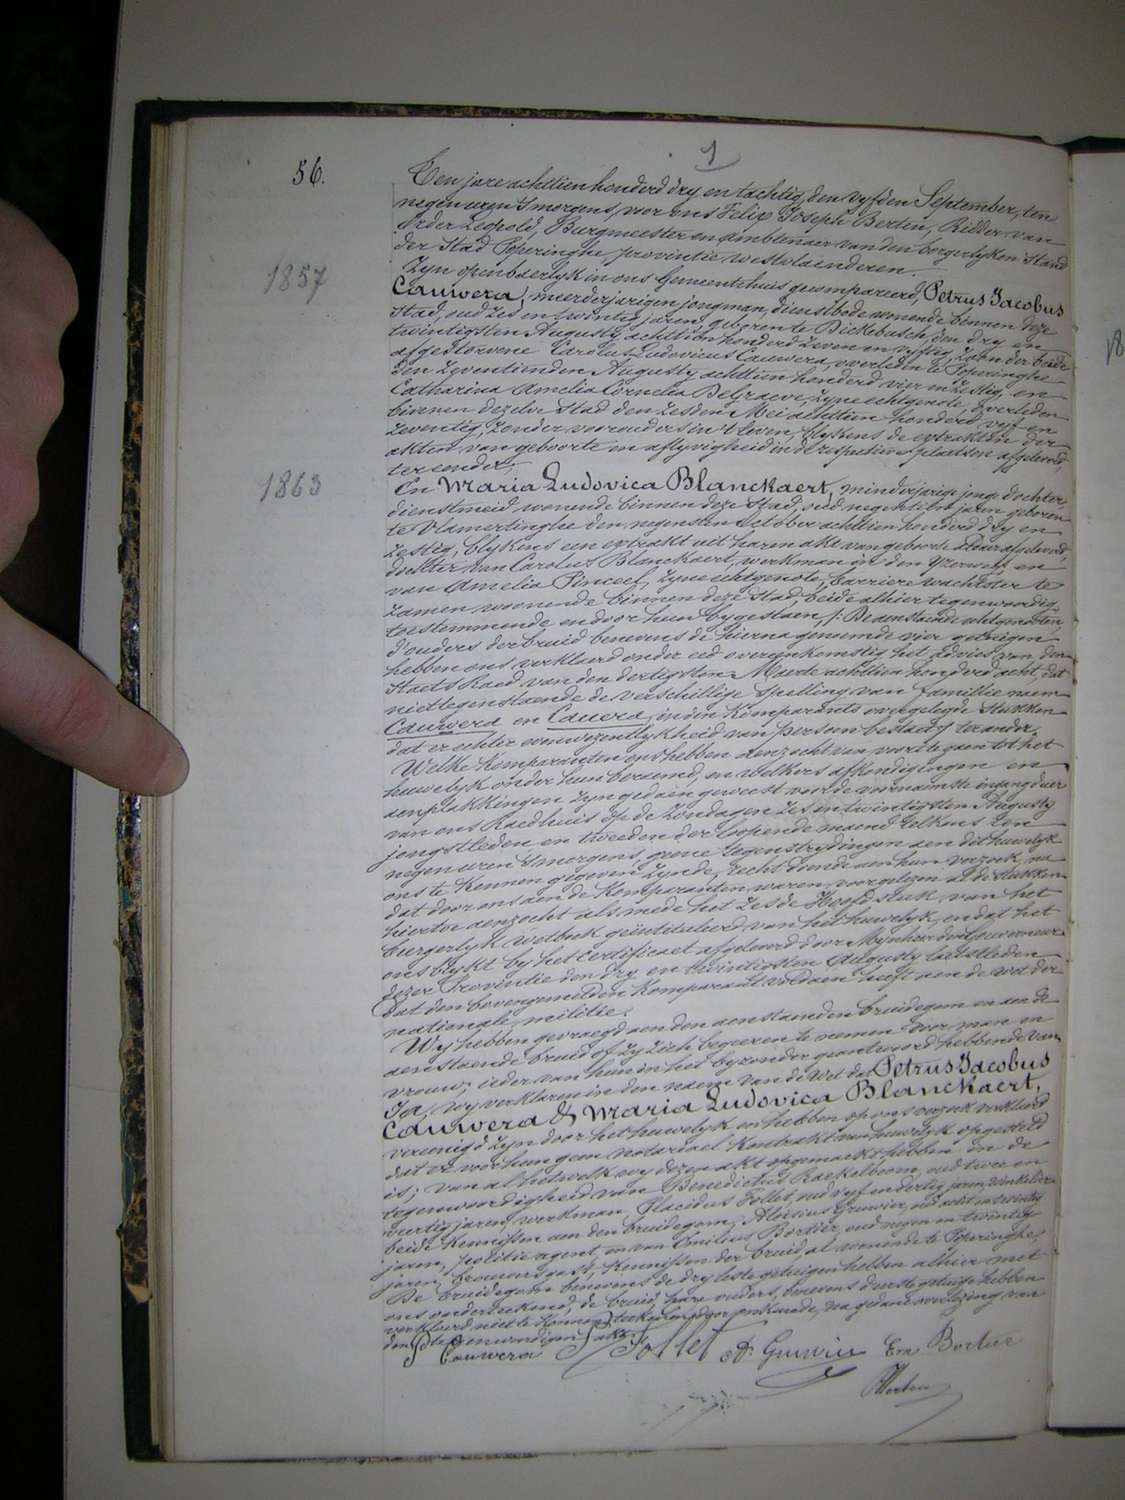 1
56.
Ten jare achttien honderd dry en tachtig, den vyfden September, ten
negen uren 'smorgens, voor ons Felix Joseph Berten, Ridder van
Order Leopold, Burgmeester en Amblenaer van den borgerlyken Stand
der Stad Poperinghe, provintie westvlaenderen.
1857
Zyn openbaerlyk in ons Gemeentehuis gecompareerd, Petrus Jacobus
Cauwera, meerderjarigen jongman, dienstbode wonende binnen deze
Stad, oud zes en twintig jaren, geboren te Dickebusch, den dry en
twintigsten Augusty achttien honderd zeven en vyftig, zoon der beide
afgestorvene Carolus Ludovicus Cauwera, overleden te Poperinghe
den zeventienden Augusty achttien honderd vier en zestig, en
Catharina Amelia Cornelia DeGraeve, zyne echtgenote, overleden
binnen dezelve Stad den zesden Mei achttien honderd vyf en
zeventig, zonder voorouders in 't leven, blykens de extrakten der
akten van geboorte en aflyvigheid in de respective plaetsen afgeleverd,
ter eender;
1863
En Maria Ludovica Blanckaert, minderjarige jonge dochter,
dienstmeid, wonende binnen deze Stad, oud negentien jaren, geboren
te Vlamertinghe den negensten October achttien honderd dry en
zestig, blykens een extrakt uit haren akt van geboorte aldaer afgeleverd,
dochter van Carolus Blanckaert, werkman in den Yzerweg, en
van Amelia Pinceel, zyne echtgenote, barriere wachtster te
zamen woonende binnen deze Stad, beide alhier tegenwoordig
toestemmende en door hun bygestaen, /: De aenstaende echtgenoten
d'ouders der bruid benevens de hierna genoemde vier getuigen
hebben ons verklaerd onder eed overeenkomstig het advies van den
Staets Raed van den dertigsten Maerte achttien honderd acht, dat
niettegenstaende de verschillige spelling van familie naem
Cauwera en Cauera, in den Komparants overgelegde stukken
dat er echter eenwezentlykheid van persoon bestaet, ter ander;
Welke Komparanten ons hebben aenzocht van voort te gaen tot het
huwelyk onder hun beraemd, en welkers afkondigingen en
aenplakkingen zyn gedaen geweest voor de voornaemste ingangdeur
van ons Raedhuis op de Zondagen zes en twintigsten Augusty
jongstleden en tweeden der loopende maend telkens ten
negen uren 'smorgens, geene tegenstrydingen aen dit huwelyk
ons te kennen gegeven zynde, recht doende aen hun verzoek, na
dat door ons aen de Komparanten waren voorgelezen al de stukken
hiertoe aenzocht als mede het zesde Hoofdstuk van het
burgerlyk Wetboek geïntituleerd van het huwelyk, en dat het
ons blykt by het Certificaet afgeleverd door Mynheer den Gouverneur
dezer Provintie den dry en twintigsten Augusty laetstleden
dat den bovengemelden Komparant voldaen heeft aen de wet der
nationale militie.
Wy hebben gevraegd aen den aenstaenden bruidegom en aen de
aenstaende bruid of zy zich begeeren te nemen voor man en
vrouw; ieder van hun in het byzonder geantwoord hebbende van
Ja, wy verklaren in den naem van de wet dat Petrus Jacobus
Cauwera & Maria Ludovica Blanckaert,
vereenigd zyn door het huwelyk en hebben op ons verzoek verklaerd
dat er voor hun geen notariael kontrakt van huwelyk opgesteld
is; van al hetwelk wy dezen akt opgemaekt hebben in de
tegenwoordigheid van Benedictus Raekelboom, oud twee en
veertig jaren, werkman, Placidus Follet, oud vyf en dertig jaren, winkelier
beide kennissen aen den bruidegom, Aloisius Gruwier, oud acht en twintig
jaren, politie agent, en van Emilius Bortier, oud negen en twintig
jaren, brouwersgast, kennissen der bruid, al wonende te Poperinghe,
De bruidegom benevens de dry leste getuigen hebben alhier met
ons onderteekend, de bruid, hare ouders, benevens d'eerste getuige hebben
verklaerd niet te konnen teekenen door onkunde, na gedane voorlezing van
den tegenwoordigen akt.
P Cauwera P Follet Al. Gruwier Em Bortier
Berten